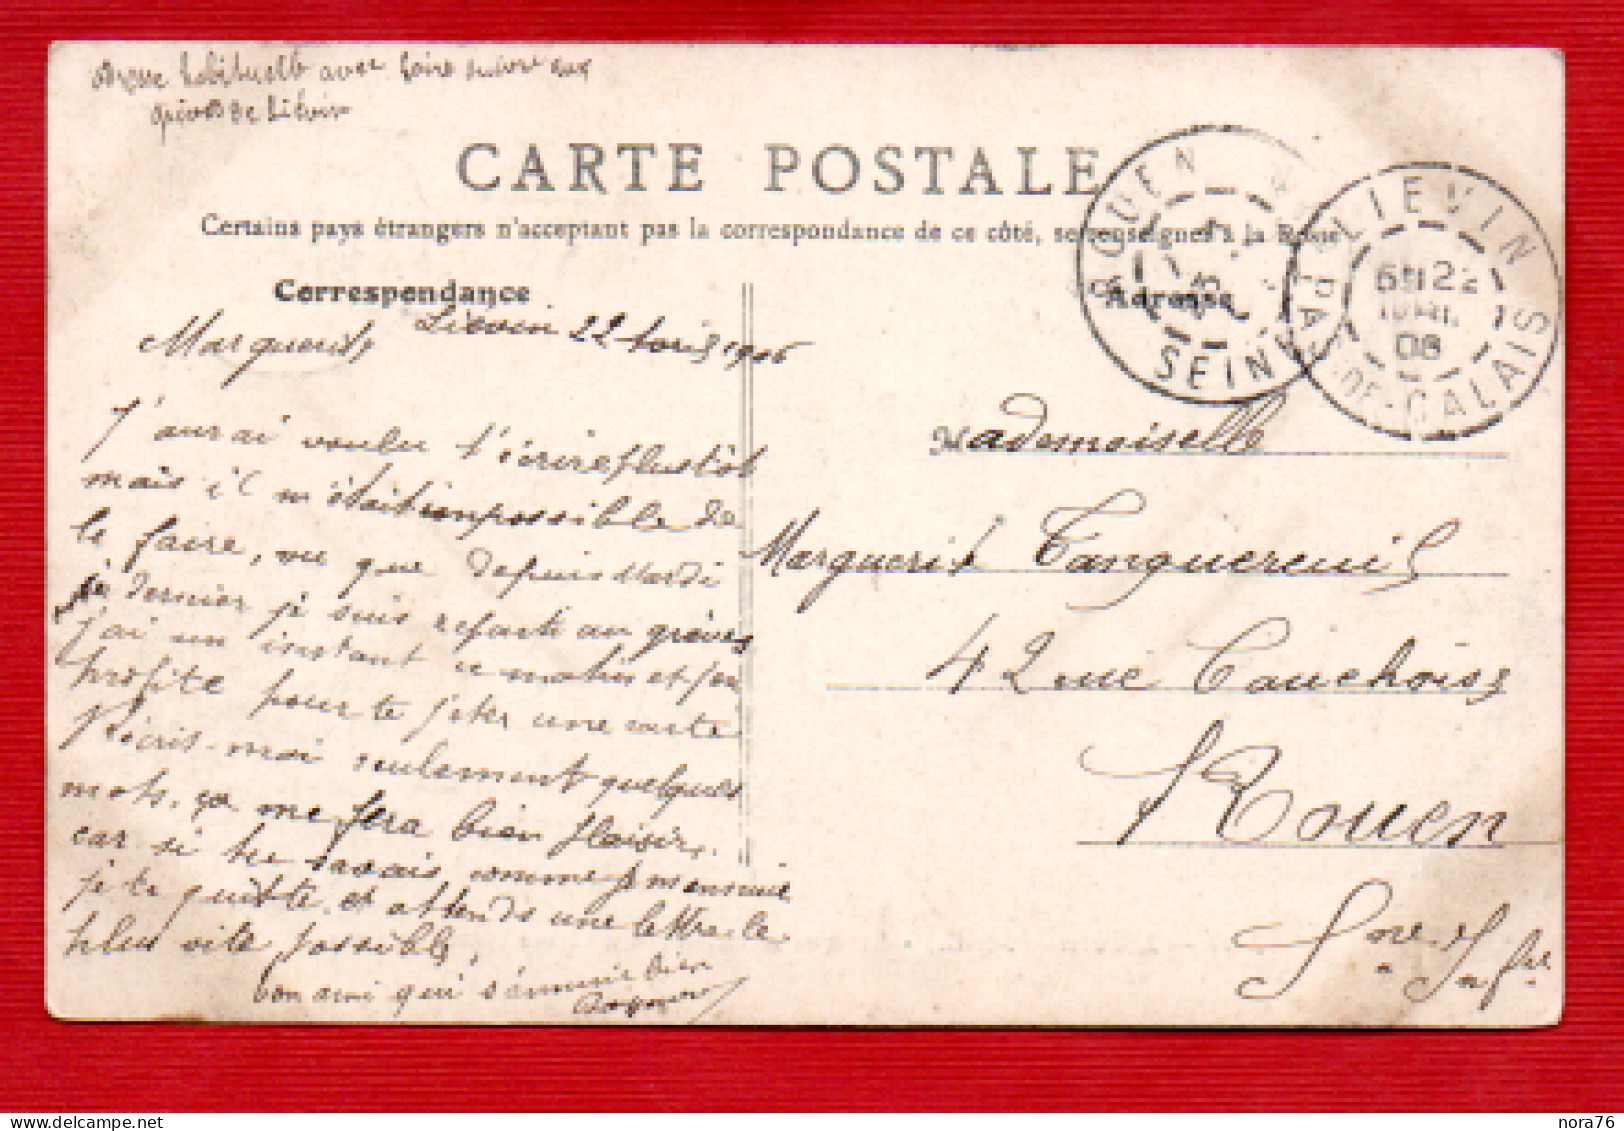 adresse habituelle avec faire suivre aux
grèves de Liévin
CARTE POSTALE
Certains pays étrangers n'acceptant pas la correspondance de ce côté, se renseigner à la Poste
Correspondance
Adresse
ROUEN
SEINE
LIEVIN
22
06
PAS-DE-CALAIS
Lievin 22 1906
Marguerite
J'aurai voulu t'écrire plustôt
mais il m'était impossible de
le faire, vu que depuis Mardi
dernier je suis reparti au grèves
j'ai un instant ce matin et j'en
profite pour te jeter une carte
écris-moi seulement quelques
mots, ça me fera bien plaisir,
car si tu savais comme je m'ennuie
je te quitte et attends une lettre le
plus vite possible,
ton ami qui s'ennuie bien
Mademoiselle
Marguerite
42 rue Cauchoise
Rouen
Sne Infre
nora76